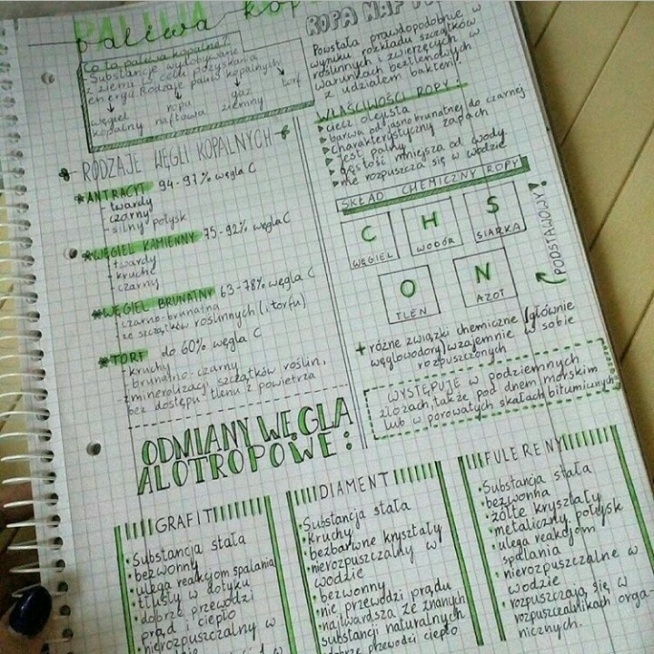 PALIWA
paliwa kop
Co to paliwa kopalne?
Substancje wydobywane
z ziemi w celu pozyskania
energii. Rodzaje paliw kopalnych
węgiel kopalny
ropa naftowa
gaz ziemny
torf
RODZAJE WĘGLI KOPALNYCH
*ANTRACYT 94-97% węgla C
- twardy
- czarny
- silny połysk
*WĘGIEL KAMIENNY 75-92% węgla C
- twardy
- kruchy
- czarny
*WĘGIEL BRUNATNY 63-78% węgla C
- czarno-brunatna
- ze szczątków roślinnych (i torfu)
*TORF do 60% węgla C
- kruchy
- brunatno-czarny
- mineralizacji szczątków roślin,
bez dostępu tlenu z powietrza
ROPA NAF
Powstała prawdopodobnie w
wyniku rozkładu szczątków
roślinnych i zwierzęcych w
warunkach beztlenowych
z udziałem bakterii.
WŁAŚCIWOŚCI ROPY:
▸ ciecz oleista
▸ barwa od jasno brunatnej do czarnej
▸ charakterystyczny zapach
▸ jest palna
▸ gęstość mniejsza od wody
▸ nie rozpuszcza się w wodzie
SKŁAD CHEMICZNY ROPY
C WĘGIEL
H WODÓR
S SIARKA
O TLEN
N AZOT
PODSTAWOWY!
+ różne związki chemiczne (głównie
węglowodory) wzajemnie w sobie
rozpuszczonych
WYSTĘPUJE W podziemnych
złożach, także pod dnem morskim
lub w porowatych skałach bitumicznych
ODMIANY WĘGLA
ALOTROPOWE:
GRAFIT
• Substancja stała
• bezwonny
• ulega reakcjom spalania
• tłusty w dotyku
• dobrze przewodzi
prąd i ciepło
• nierozpuszczalny w
DIAMENT
• Substancja stała
• kruchy
• bezbarwne kryształy
• nierozpuszczalny w
wodzie
• bezwonny
• nie przewodzi prądu
• najtwardsza ze znanych
substancji naturalnych
• dobrze przewodzi ciepło
FULERENY
• Substancja stała
• bezwonna
• żółte kryształy
• metaliczny połysk
• ulega reakcjom
spalania
• nierozpuszczalne w
wodzie
• rozpuszczają się w
rozpuszczalnikach orga-
nicznych.